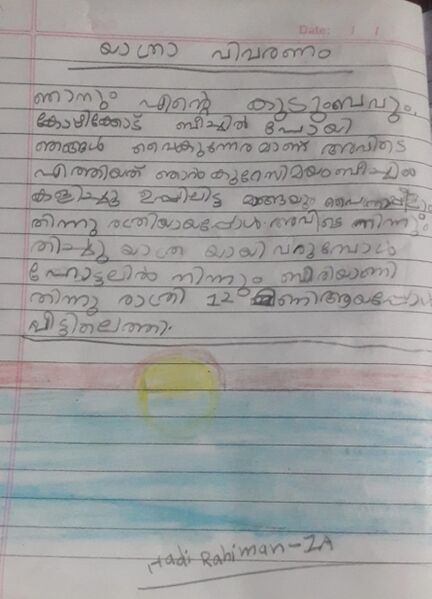 Date: / /
യാത്രാ വിവരണം
ഞാനും എന്റെ കുടുംബവും.
കോഴിക്കോട് ബീച്ചിൽ പോയി
ഞങ്ങൾ വൈകുന്നേരമാണ് അവിടെ
എത്തിയത് ഞാൻ കുറേസമയം ബീച്ചിൽ
കളിച്ചു ഉപ്പിലിട്ട മാങ്ങയും
തിന്നു രത്രിയായപ്പോൾ അവിടെ നിന്നും
തിച്ചു യാത്ര യായി വരുമ്പോൾ
ഹോട്ടലിൽ നിന്നും ബിരിയാണി
തിന്നു രാത്രി 12 മണിആയപ്പോൾ
വീട്ടിലെത്തി.
Hadi Rahiman-IA